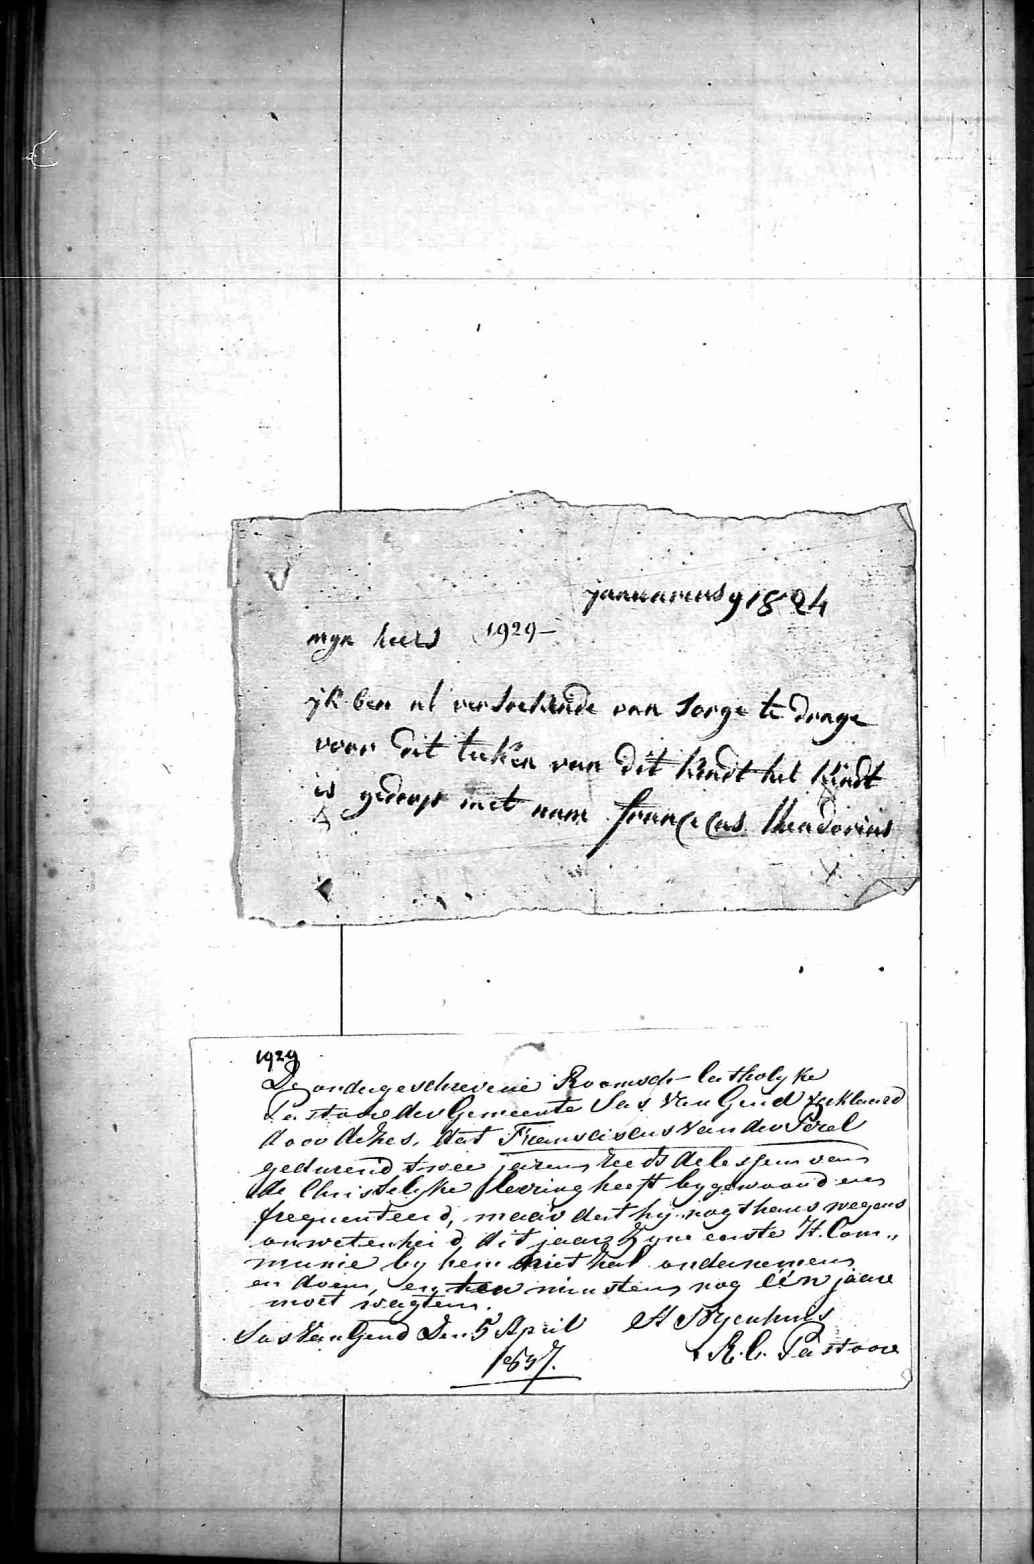 januarius 9 1824
myn heers 1929
yk ben ul versoekinde van sorge te drage
voor dit teeken van dit kindt het kindt
is gedoopt met nam francicus theadorius
1929
De ondergeschrevene Roomsch-Catholyke
Pastoor der Gemeente Sas Van Gend verklaard
door dezes, dat Franciscus van der Parel
gedurend twee jaren reeds de lessen van
de Christelyke Leering heeft bygewoond en
frequenteerd, maar dat hy nogthans wegens
onwetenheid dit jaar zyne eerste H. Com„
munie by hem niet zal ondernemen
en doen, en ten minsten nog één jaar
moet wagten.
Sas Van Gend Den 5 April
1837.
R. C. Pastoor